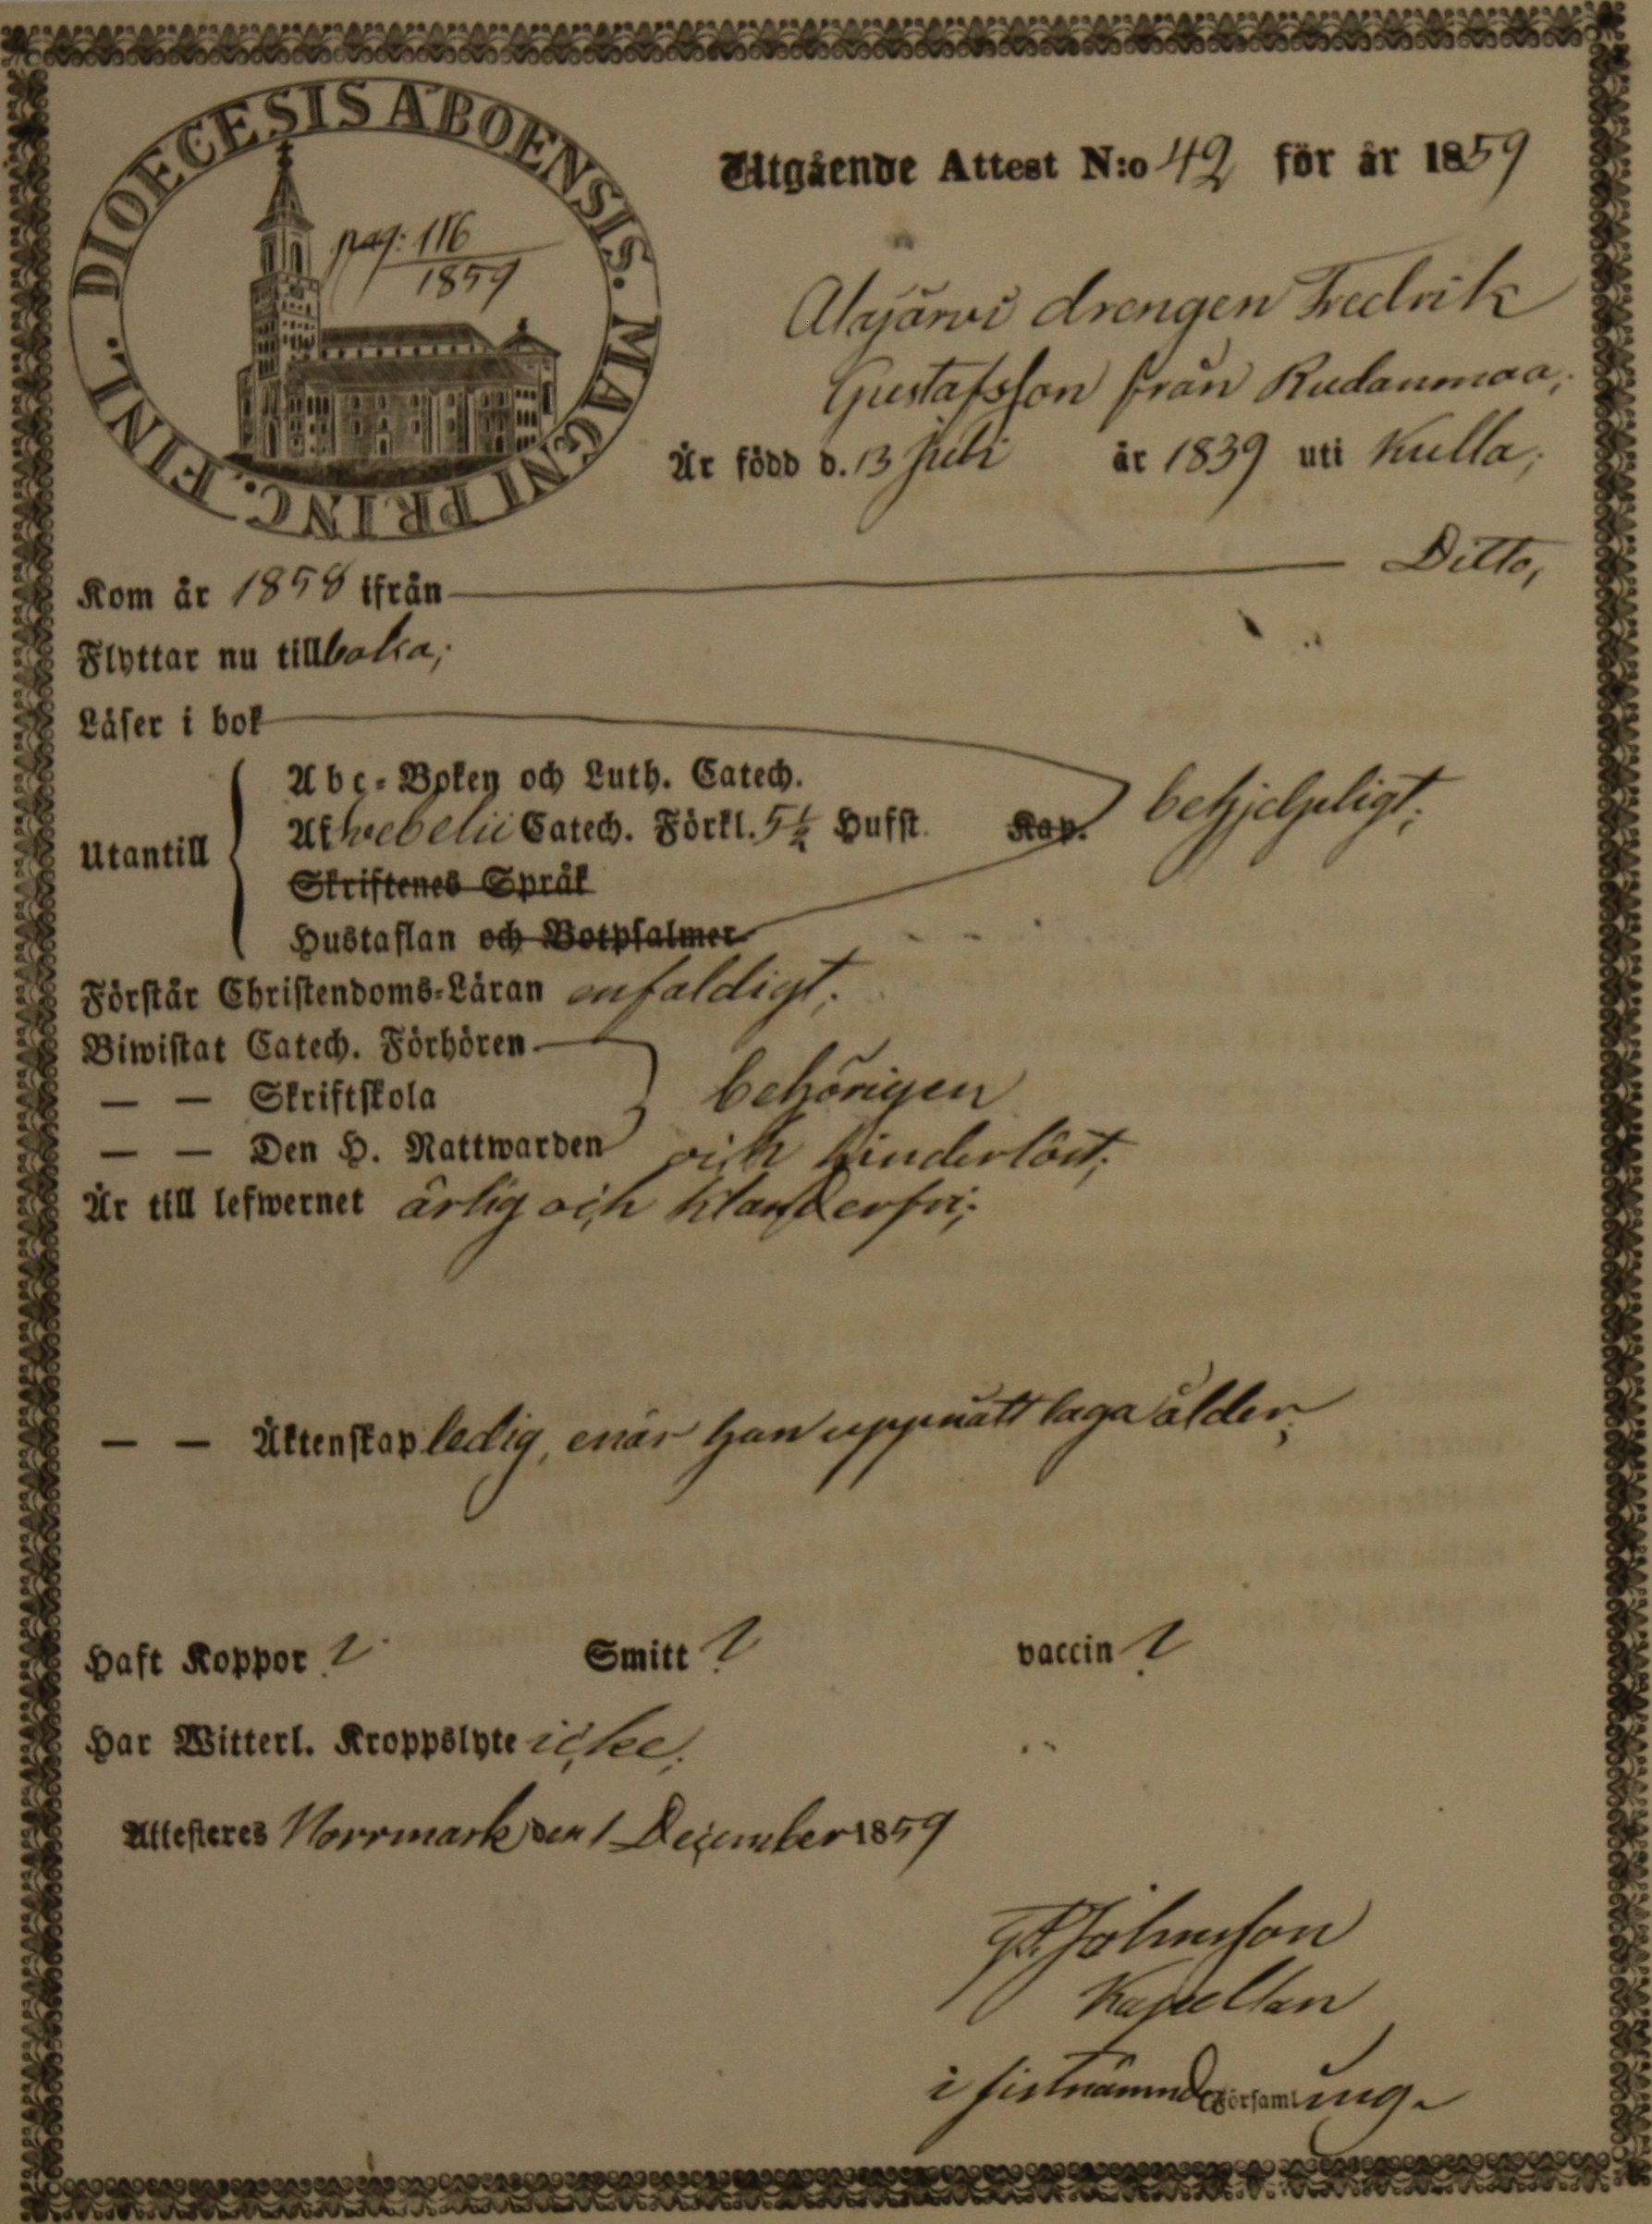 DIOECESIS ABOENSIS. MAGNI PRINC. FINL.
pag: 116
1859
Utgående Attest N:o 42 för år 1859
Alajärvi drengen Fredrik
Gustafsson från Rudanmaa;
Är född d. 13 Juli år 1839 uti Kulla;
Kom år 1858 ifrån Ditto,
Flyttar nu tillbaka;
Läser i bok
Utantill
Abc-Boken och Luth. Catech.
Af Svebelii Catech. Förkl. 5 1/2 Hufst. Kap. behjelpligt;
Skriftenes Språk
Hustaflan och Botpsalmer
Förstår Christendoms-Läran enfaldigt;
Biwistat Catech. Förhören
— — Skriftskola behörigen
— — Den H. Nattwarden och hinderlöst;
Är till lefwernet ärlig och klanderfri;
— — Äktenskap ledig, enär han uppnått laga ålder;
Haft Koppor ? Smitt ? vaccin ?
Har Witterl. Kroppslyte icke;
Attesteres Norrmark den 1 December 1859
Johnsson
Kapellan
i sistnämnde Församling.